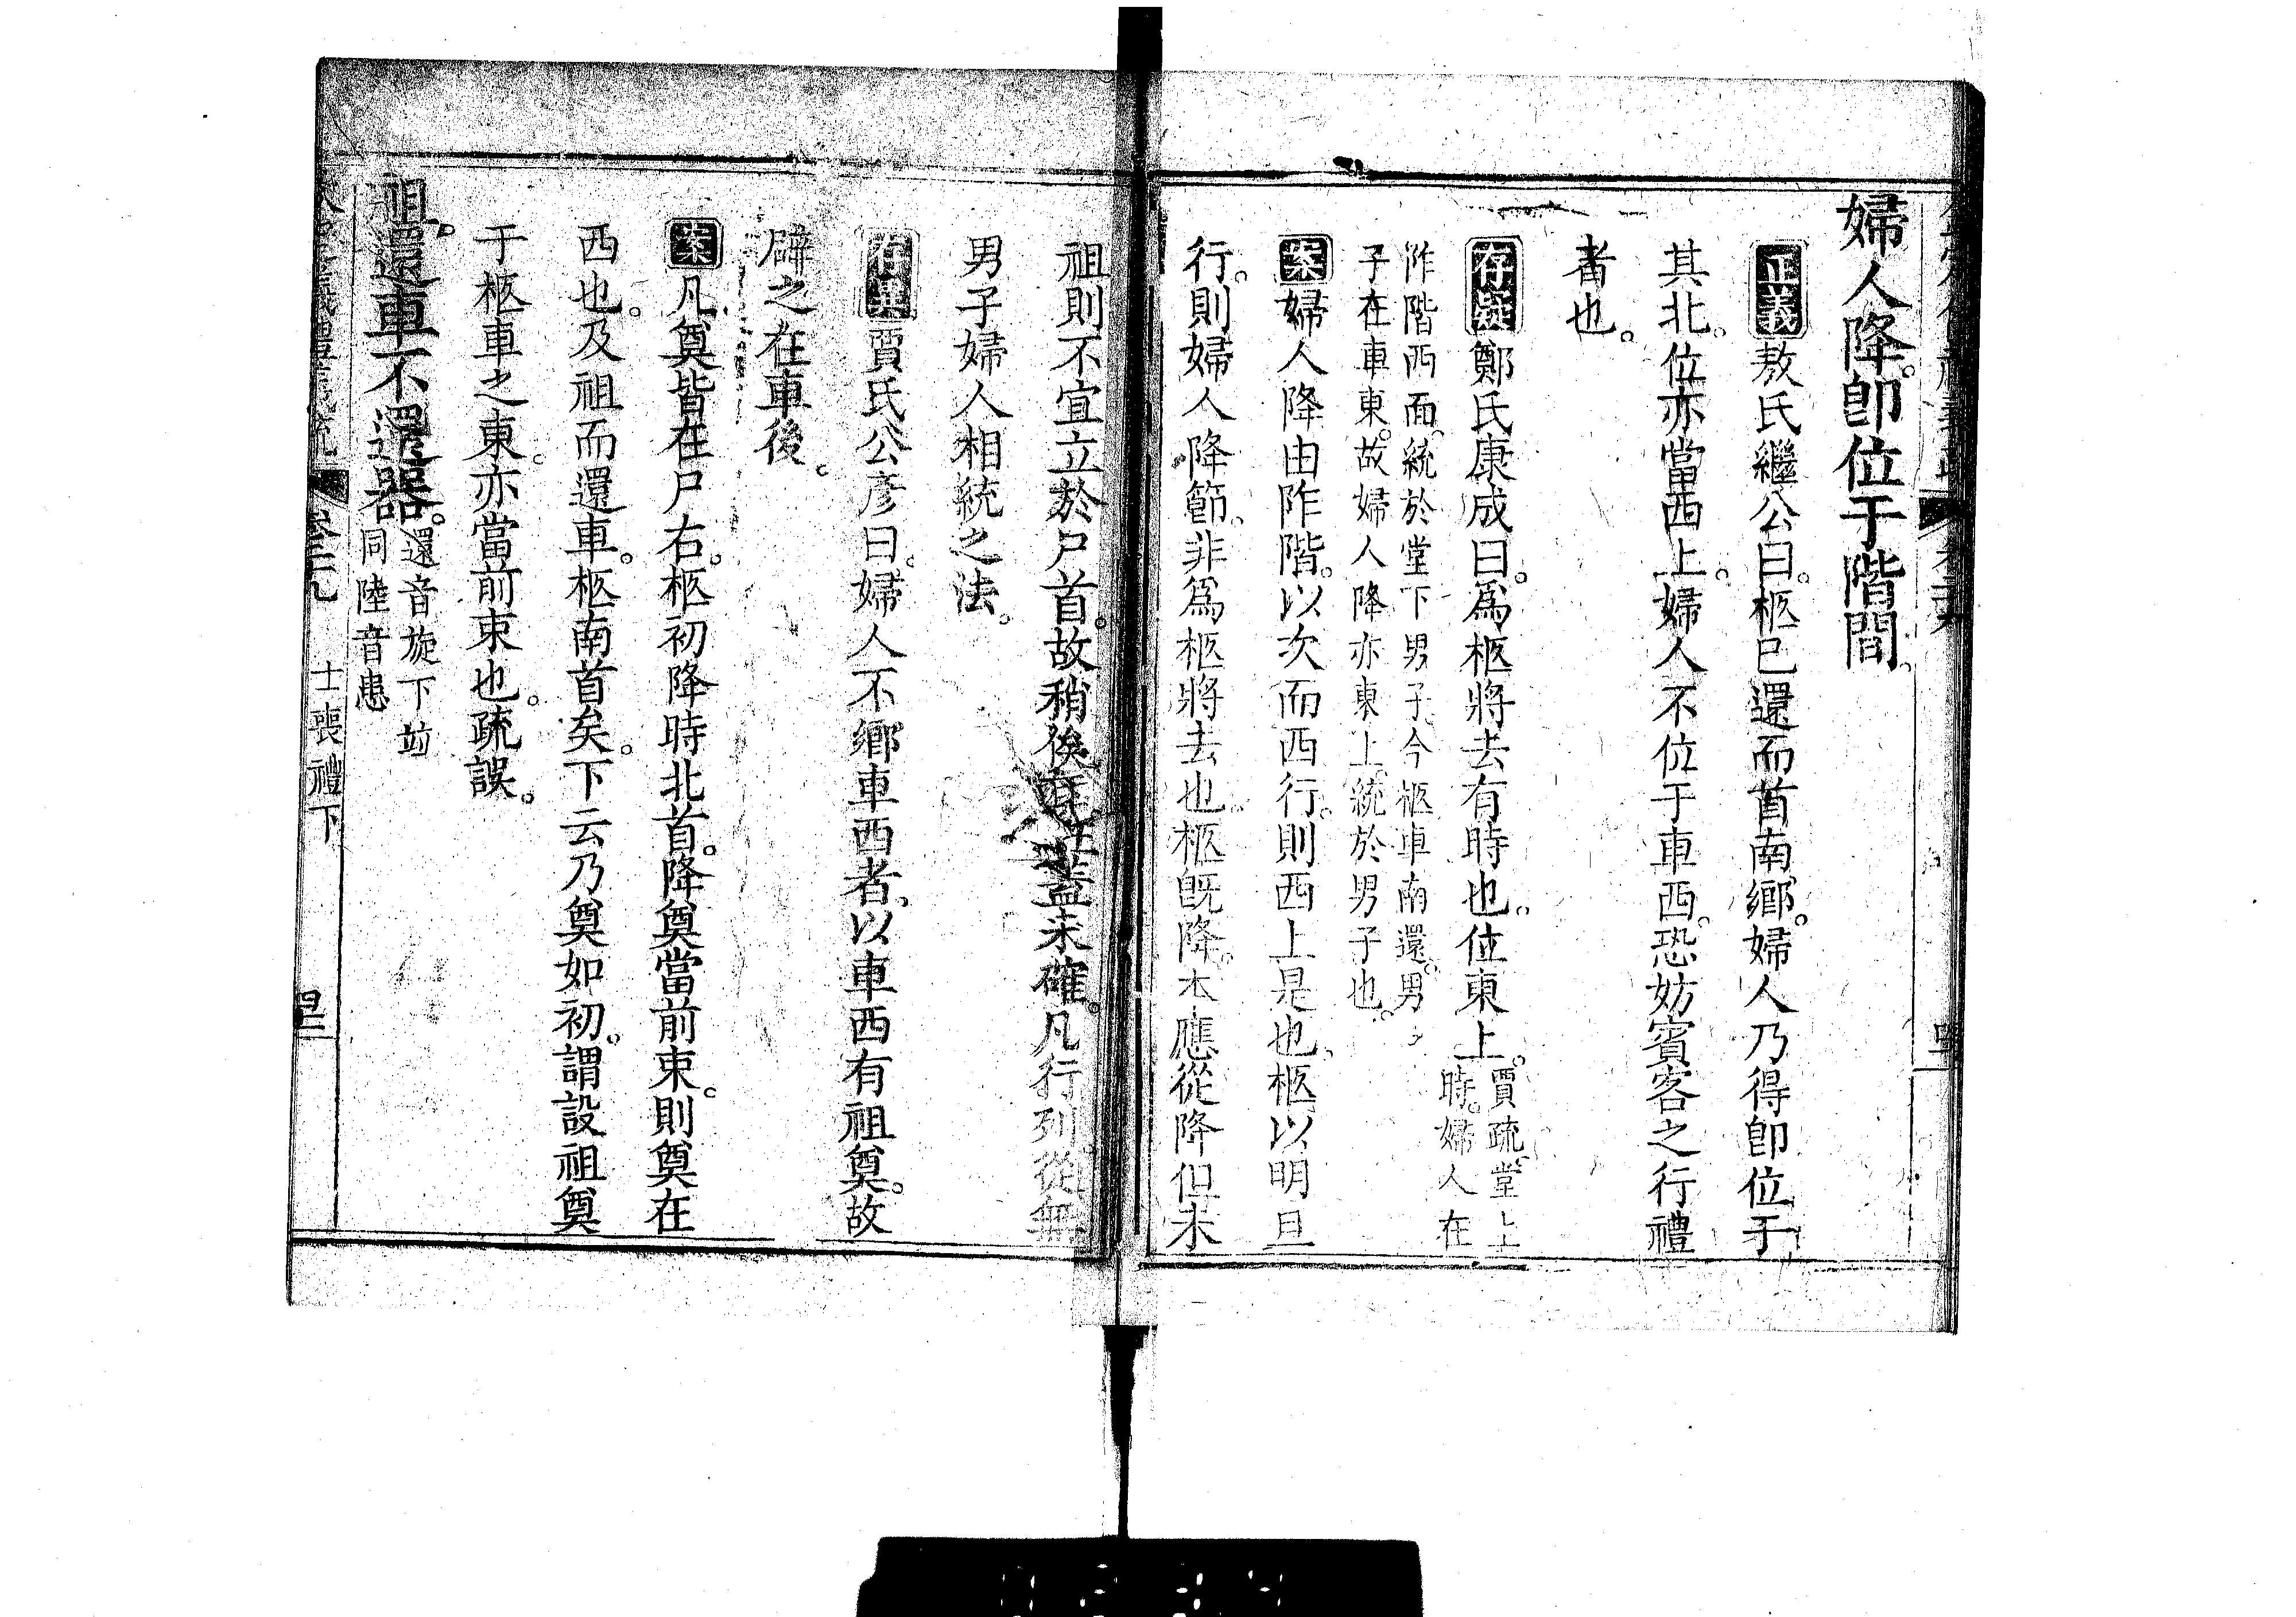 婦人降。卽位于階間。
正義敖氏繼公曰。柩已還而首南鄉。婦人乃得卽位于
其北。位亦當西上。婦人不位于車西。恐妨賓客之行禮
者也。
存疑鄭氏康成曰。爲柩將去有時也。位東上。賈疏堂上
時。婦人在
阼階西面。統於堂下男子今柩車南還。男
子在車東。故婦人降亦東上。統於男子也。
案婦人降由阼階。以次而西行。則西上是也。柩以明旦
行。則婦人降節。非爲柩將去也。柩旣降。本應從降但未
祖則不宜立於尸首。故稍俟蓋未確。凡行列從無
男子婦人相統之法。
存異賈氏公彦曰。婦人不鄉車西者。以車西有祖奠。故
辟之在車後。
案凡奠皆在尸右。柩初降時北首。降奠當前束。則奠在
西也。及祖而還車。柩南首矣。下云乃奠如初。謂設祖奠
于柩車之東。亦當前束也。疏誤。
祖。還車不還器。還音旋下並
同陸音患
義疏 卷二十九 士喪禮下 四二